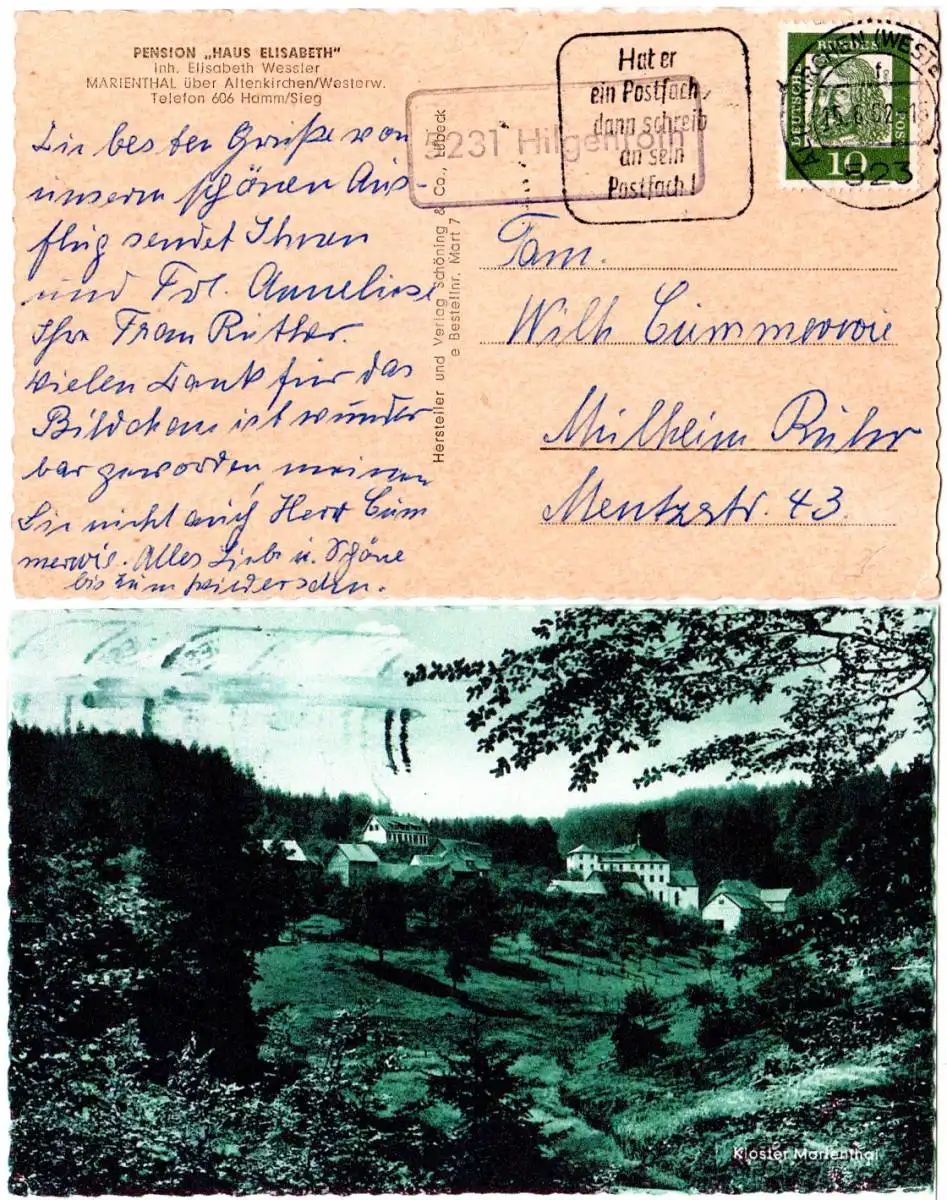 PENSION „HAUS ELISABETH"
Inh. Elisabeth Wessler
MARIENTHAL über Altenkirchen/Westerw.
Telefon 606 Hamm/Sieg
Hat er
ein Postfach,
dann schreib
an sein
Postfach!
5231 Hilgenroth
ALTENKIRCHEN (WESTE
523
DEUTSCHE
BUNDES
POST
10
Die besten Grüße von
unserm schönen Aus-
flug sendet Ihnen
und Frl. Anneliese
Ihre Frau Rüther.
Vielen Dank für das
Bildchen ist wunder
bar geworden, meinen
Sie nicht auch Herr Cüm
merwie. Alles Liebe u. Schöne
bis zum Wiedersehn.
Hersteller und Verlag Schöning & Co., Lübeck
e Bestellnr. Mart 7
Fam.
Wilh Cümmerwie
Mülheim Ruhr
Mentzstr. 43.
Kloster Marienthal